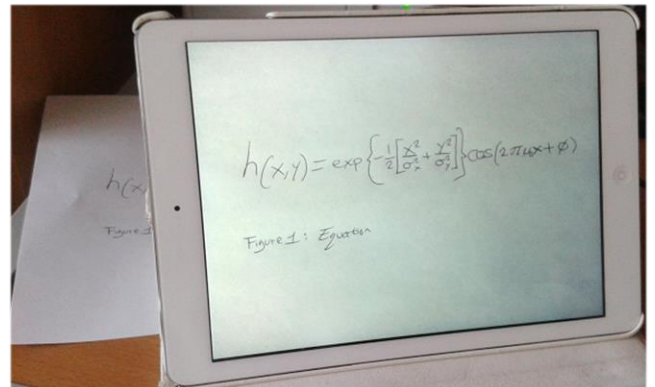 h(x,y) = exp{-1/2[x²/σx² + y²/σy²]}cos(2πμ₀x+φ)
Figure 1: Equation
h(x,
Figure 1